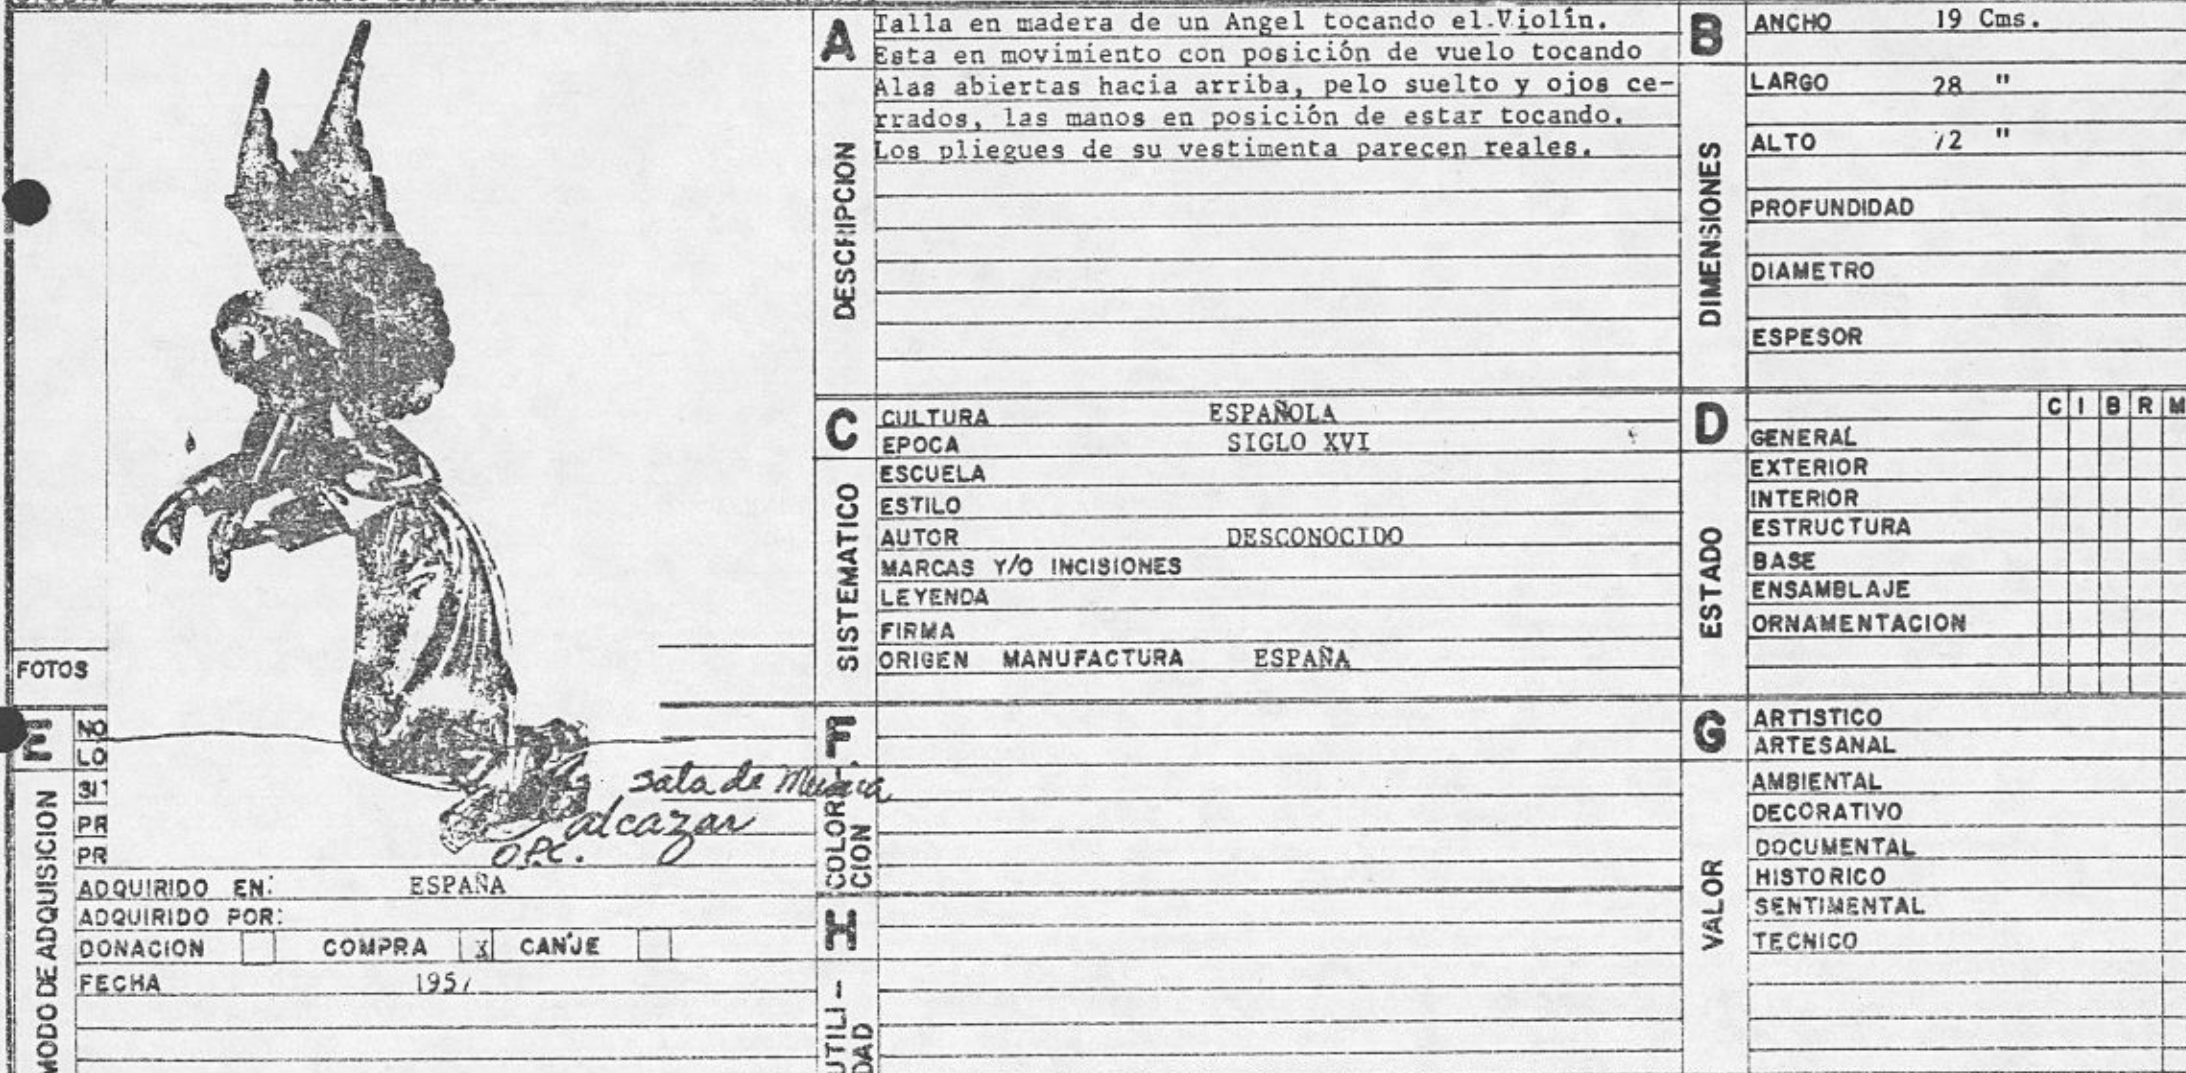 A
DESCRIPCION
Talla en madera de un Angel tocando el Violín.
Esta en movimiento con posición de vuelo tocando
Alas abiertas hacia arriba, pelo suelto y ojos ce-
rrados, las manos en posición de estar tocando.
Los pliegues de su vestimenta parecen reales.
B
DIMENSIONES
ANCHO 19 Cms.
LARGO 28 "
ALTO "
PROFUNDIDAD
DIAMETRO
ESPESOR
C
SISTEMATICO
CULTURA ESPAÑOLA
EPOCA SIGLO XVI
ESCUELA
ESTILO
AUTOR DESCONOCIDO
MARCAS Y/O INCISIONES
LEYENDA
FIRMA
ORIGEN MANUFACTURA ESPAÑA
D
ESTADO
C I B R M
GENERAL
EXTERIOR
INTERIOR
ESTRUCTURA
BASE
ENSAMBLAJE
ORNAMENTACION
FOTOS
E
MODO DE ADQUISICION
NO
LO
SIT
PR
PR
sala de Musica
alcazar
ADQUIRIDO EN: ESPAÑA
ADQUIRIDO POR:
DONACION COMPRA X CANJE
FECHA
F
COLORA-
CION
H
UTILI-
DAD
G
VALOR
ARTISTICO
ARTESANAL
AMBIENTAL
DECORATIVO
DOCUMENTAL
HISTORICO
SENTIMENTAL
TECNICO